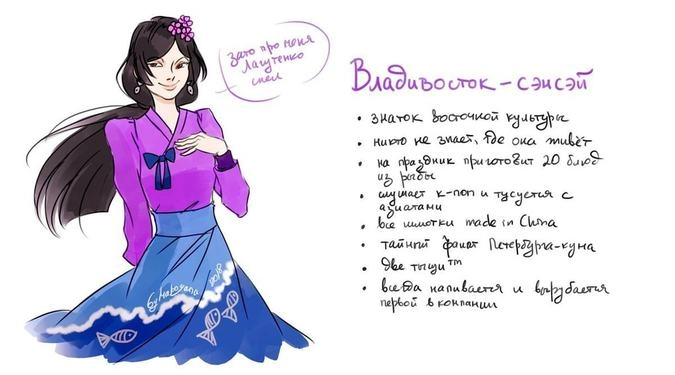 зато про меня
Лагутенко
спел
Владивосток - сэнсэй
• знаток восточной культуры
• никто не знает, где она живёт
• на праздник приготовит 20 блюд
из рыбы
• слушает к-поп и тусуется с
азиатами
• все шмотки made in China
• тайный фанат Петербурга-куна
• две тыщи™
• всегда напивается и вырубается
первой в компании
by Makoyana 2018